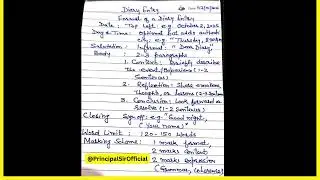 Diary Entry
Format of a Diary Entry
Date: Top left: e.g. October 2, 2025
Day & Time: Optional but adds
city: e.g. "Thursday, 8:30 PM
Salutation: Informal: "Dear Diary"
Body: 2-3 paragraphs
1. Context: Briefly describe
the event/Experience (1-2
Sentences)
2. Reflection: Share emotions,
Thoughts, or lessons (2-3
3. Conclusion: Look forward or
resolve (1-2 Sentences)
Closing Signoff: e.g. "Good night,
(Your Name)
Word Limit: 120-150 Words
Marking Scheme: 1 mark format,
2 marks content
2 marks expression
(Grammar, coherence)
@PrincipalSirOfficial